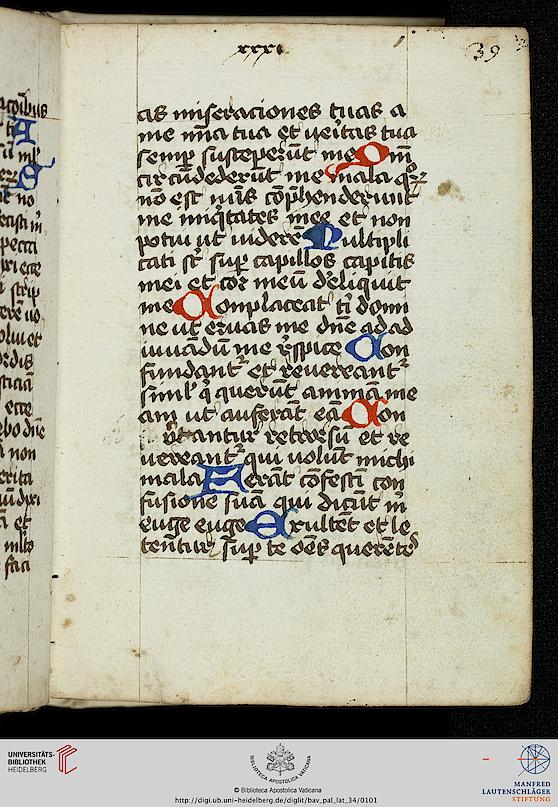 xxxi
39
cis miseraciones tuas a
me mīa tua et veītas tua
semp susceperūt me Qm̄
circūdederūt me mala qͦꝝ
nō est nūs cōp̄henderunt
me inīqͥtates mee et non
potui ut viderē Multipli
cati st̄ sup capillos capitis
mei et cor meū deliquit
me Complaceat tͥ domi
ne ut eruas me dn̄e ad ad
iuuādū me r̄spice Con
fundant᷑ et reuereant᷑
simlˀ q̄ querūt animā me
am ut auferāt eā Con
v̄tantur retrorsū et re
uereant᷑ qui volūt michi
mala Ferāt cōfestī con
fusione suā qui dicūt m̄
euge euge Exultēt et le
tent̄ur sup te oēs querētes
UNIVERSITÄTS-
BIBLIOTHEK
HEIDELBERG
BIBLIOTECA APOSTOLICA VATICANA
© Biblioteca Apostolica Vaticana
http://digi.ub.uni-heidelberg.de/diglit/bav_pal_lat_34/0101
MANFRED
LAUTENSCHLÄGER
STIFTUNG